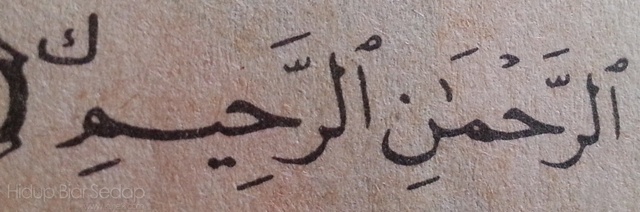 ٱلرَّحْمَٰنِ ٱلرَّحِيمِ ك
Hidup Biar Sedap